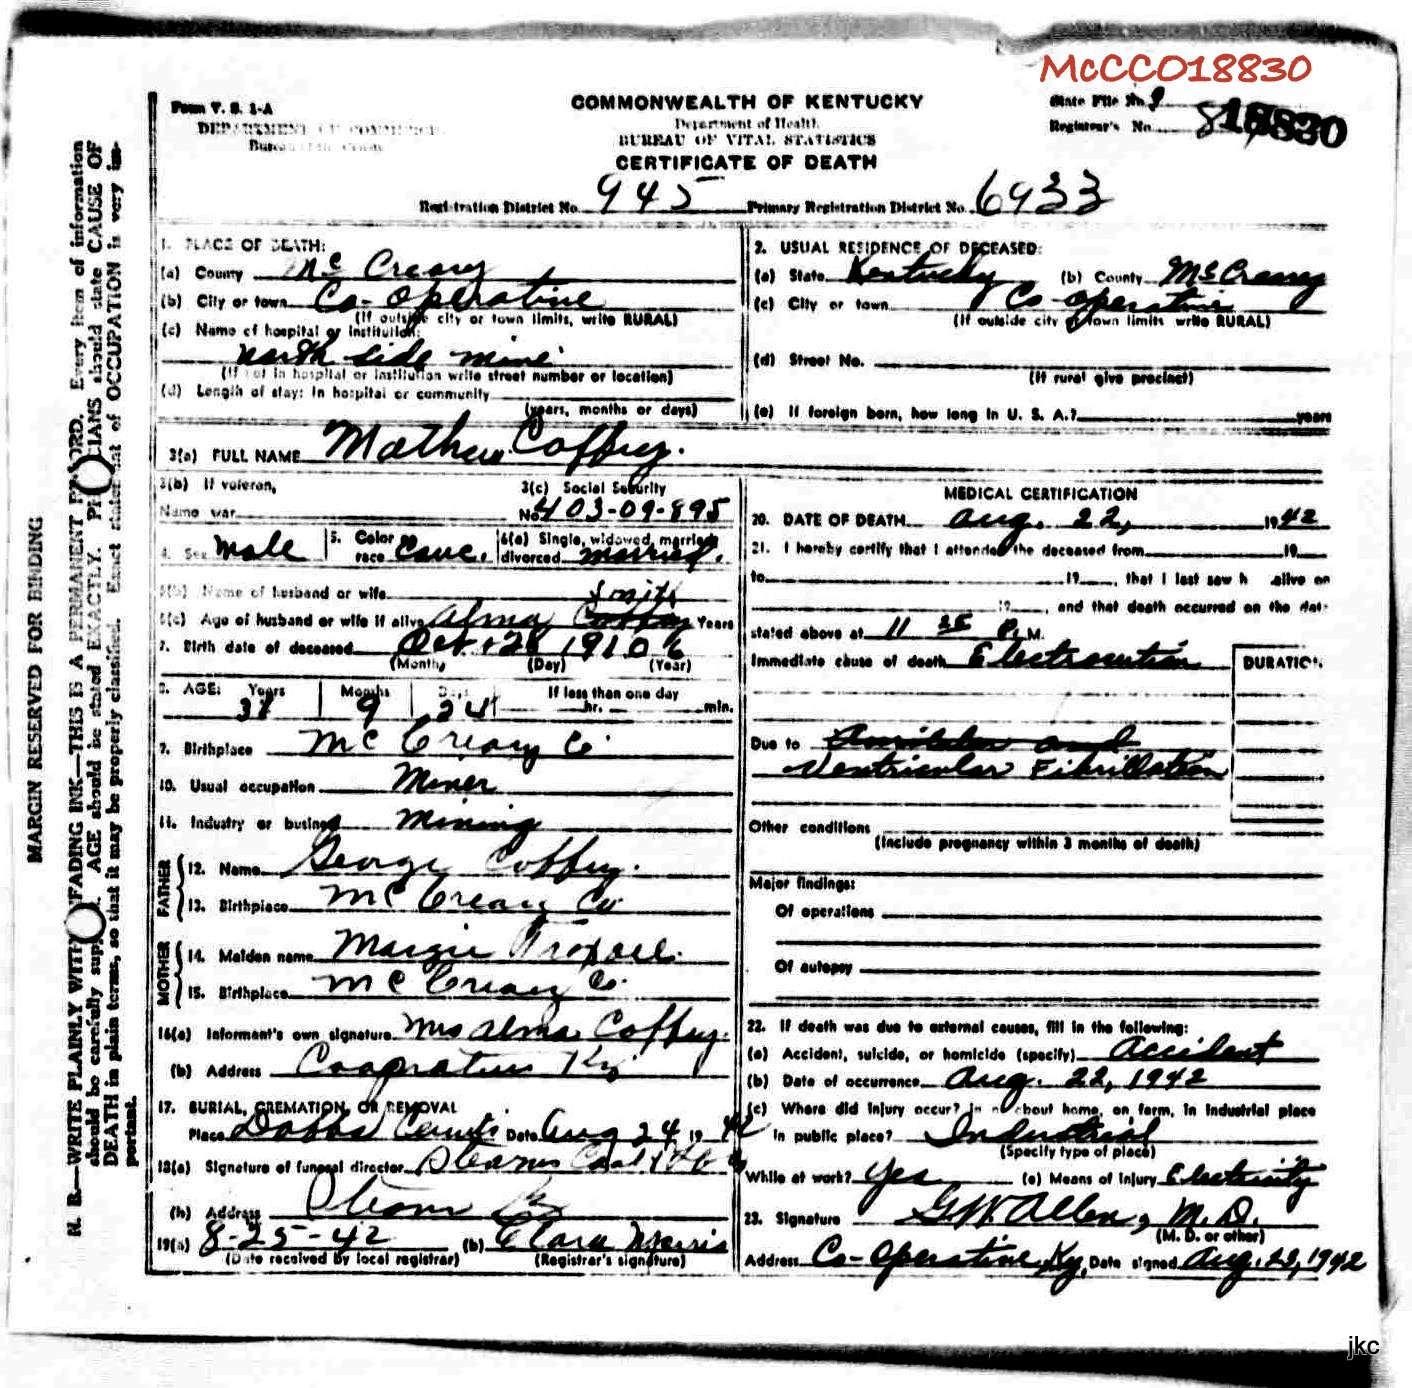 McCCO18830
Form V. S. 1-A
DEPARTMENT OF COMMERCE
Bureau of the Census
COMMONWEALTH OF KENTUCKY
Department of Health
BUREAU OF VITAL STATISTICS
CERTIFICATE OF DEATH
State File No. 18830
Registrar's No.
Registration District No. 945 Primary Registration District No. 6933
MARGIN RESERVED FOR BINDING
N. B.—WRITE PLAINLY WITH UNFADING INK—THIS IS A PERMANENT RECORD. Every item of information
should be carefully supplied. AGE should be stated EXACTLY. PHYSICIANS should state CAUSE OF
DEATH in plain terms, so that it may be properly classified. Exact statement of OCCUPATION is very im-
portant.
1. PLACE OF DEATH:
(a) County Mc Creary
(b) City or town Co-operative
(If outside city or town limits, write RURAL)
(c) Name of hospital or institution:
north side mine
(If not in hospital or institution write street number or location)
(d) Length of stay: In hospital or community
(years, months or days)
2. USUAL RESIDENCE OF DECEASED:
(a) State Kentucky (b) County McCreary
(c) City or town Co-operative
(If outside city or town limits write RURAL)
(d) Street No.
(If rural give precinct)
(e) If foreign born, how long in U. S. A.? years
3(a) FULL NAME Mathew Coffey.
3(b) If veteran,
Name war
3(c) Social Security
No. 403-09-895
4. Sex Male 5. Color race Cauc. 6(a) Single, widowed, married, divorced married.
6(b) Name of husband or wife Smith
6(c) Age of husband or wife if alive Alma Coffey Years
7. Birth date of deceased Oct. 28 1910
(Month) (Day) (Year)
8. AGE: Years Months Days If less than one day
31 9 24 hr. min.
9. Birthplace McCreary Co.
10. Usual occupation Miner
11. Industry or business Mining
FATHER
12. Name George Coffey.
13. Birthplace McCreary Co
MOTHER
14. Maiden name Margie Troxell.
15. Birthplace McCreary Co.
16(a) Informant's own signature Mrs Alma Coffey.
(b) Address Cooprative Ky
17. BURIAL, CREMATION, OR REMOVAL
Place Dobbs Cemt. Date Aug 24 1942
18(a) Signature of funeral director Stearns Coal &
(b) Address Stearns Ky
19(a) 8-25-42 (b) Clara Morris
(Date received by local registrar) (Registrar's signature)
MEDICAL CERTIFICATION
20. DATE OF DEATH Aug. 22, 1942
21. I hereby certify that I attended the deceased from 19
to 19 , that I last saw h alive on
19 , and that death occurred on the date
stated above at 11 25 P. M.
Immediate cause of death Electrocution
DURATION
Due to Auricular and
Ventricular Fibrillation
Other conditions
(Include pregnancy within 3 months of death)
Major findings:
Of operations
Of autopsy
22. If death was due to external causes, fill in the following:
(a) Accident, suicide, or homicide (specify) Accident
(b) Date of occurrence Aug. 22, 1942
(c) Where did injury occur? In or about home, on farm, in industrial place
in public place? Industrial
(Specify type of place)
While at work? Yes (e) Means of injury Electricity
23. Signature G.W. Allen, M.D.
(M. D. or other)
Address Co-operative, Ky. Date signed Aug. 23, 1942
jkc